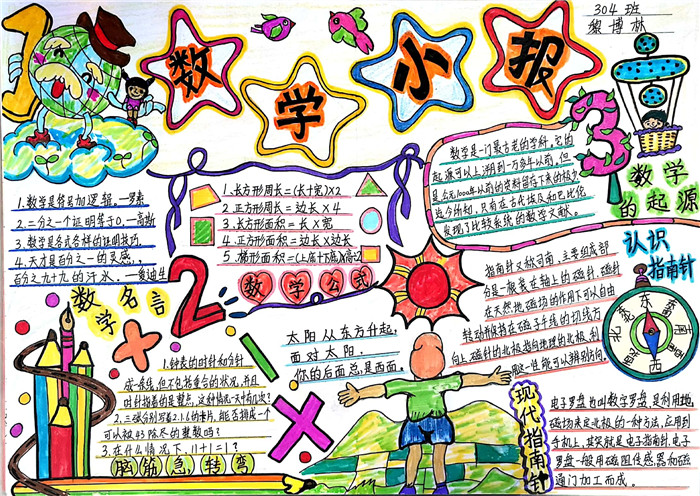 304班
黎博林
数学小报
数学是一门最古老的学科，它的
起源可以上溯到一万多年以前，但
是公元1000年以前的资料留存下来的极少
迄今所知，只有在古代埃及和巴比伦
发现了比较系统的数学文献。
数学
的起源
1.数学是符号加逻辑。—罗素
2.二分之一个证明等于0.—高斯
3.数学是各式各样的证明技巧.
4.天才是百分之一的灵感，，
百分之九十九的汗水.—爱迪生
数学名言
1.长方形周长=(长+宽)×2
2.正方形周长=边长×4
3.长方形面积=长×宽
4.正方形面积=边长×边长
5.梯形面积=(上底+下底)×高÷2
数学公式
认识
指南针
指南针又称司南，主要组成部
分是一根装在轴上的磁针，磁针
在天然地磁场的作用下可以自由
转动并保持在磁子午线的切线方
向上磁针的北极指向地理的北极，利
用这一性能可以辨别方向。
东
南
西
北
太阳从东方升起，
面对太阳.
你的后面总是西面。
1.钟表的时针和分针
成一条线，但不包括重合的状况，并且
时针指着的是整点，这种情况一天有几次？
2.三张分别写着2.1.6的卡片，能否排成一个
可以被43除尽的整数吗？
3.在什么情况下，1+1=1？
脑筋急转弯
现代指南针
电子罗盘，也叫数字罗盘，是利用地
磁场来定北极的一种方法，应用到
手机上，其实就是电子指南针，电子
罗盘一般用磁阻传感器和磁
通门加工而成。